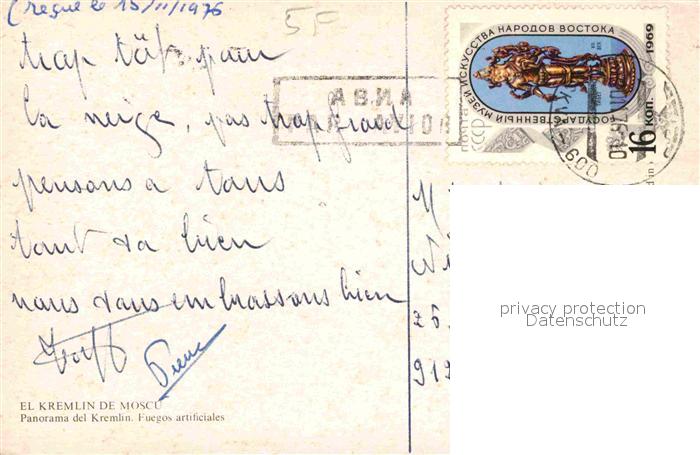 (reçue le 15/11/1976
5F
trop tôt pour
la neige, pas trop froid
pensons a tous
tout va bien
nous vous embrassons bien
Pierre
EL KREMLIN DE MOSCU
Panorama del Kremlin. Fuegos artificiales
АВИА
PAR AVION
ГОСУДАРСТВЕННЫЙ МУЗЕЙ ИСКУССТВА НАРОДОВ ВОСТОКА
1969
16 коп.
M
26
919
privacy protection
Datenschutz